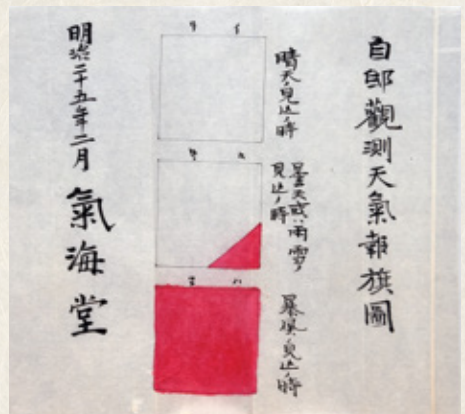 自邸觀測天氣報旗圖
晴天ノ見込ノ時
曇天或ハ雨雪ノ
見込ノ時
暴風ノ見込ノ時
明治二十五年二月 氣海堂